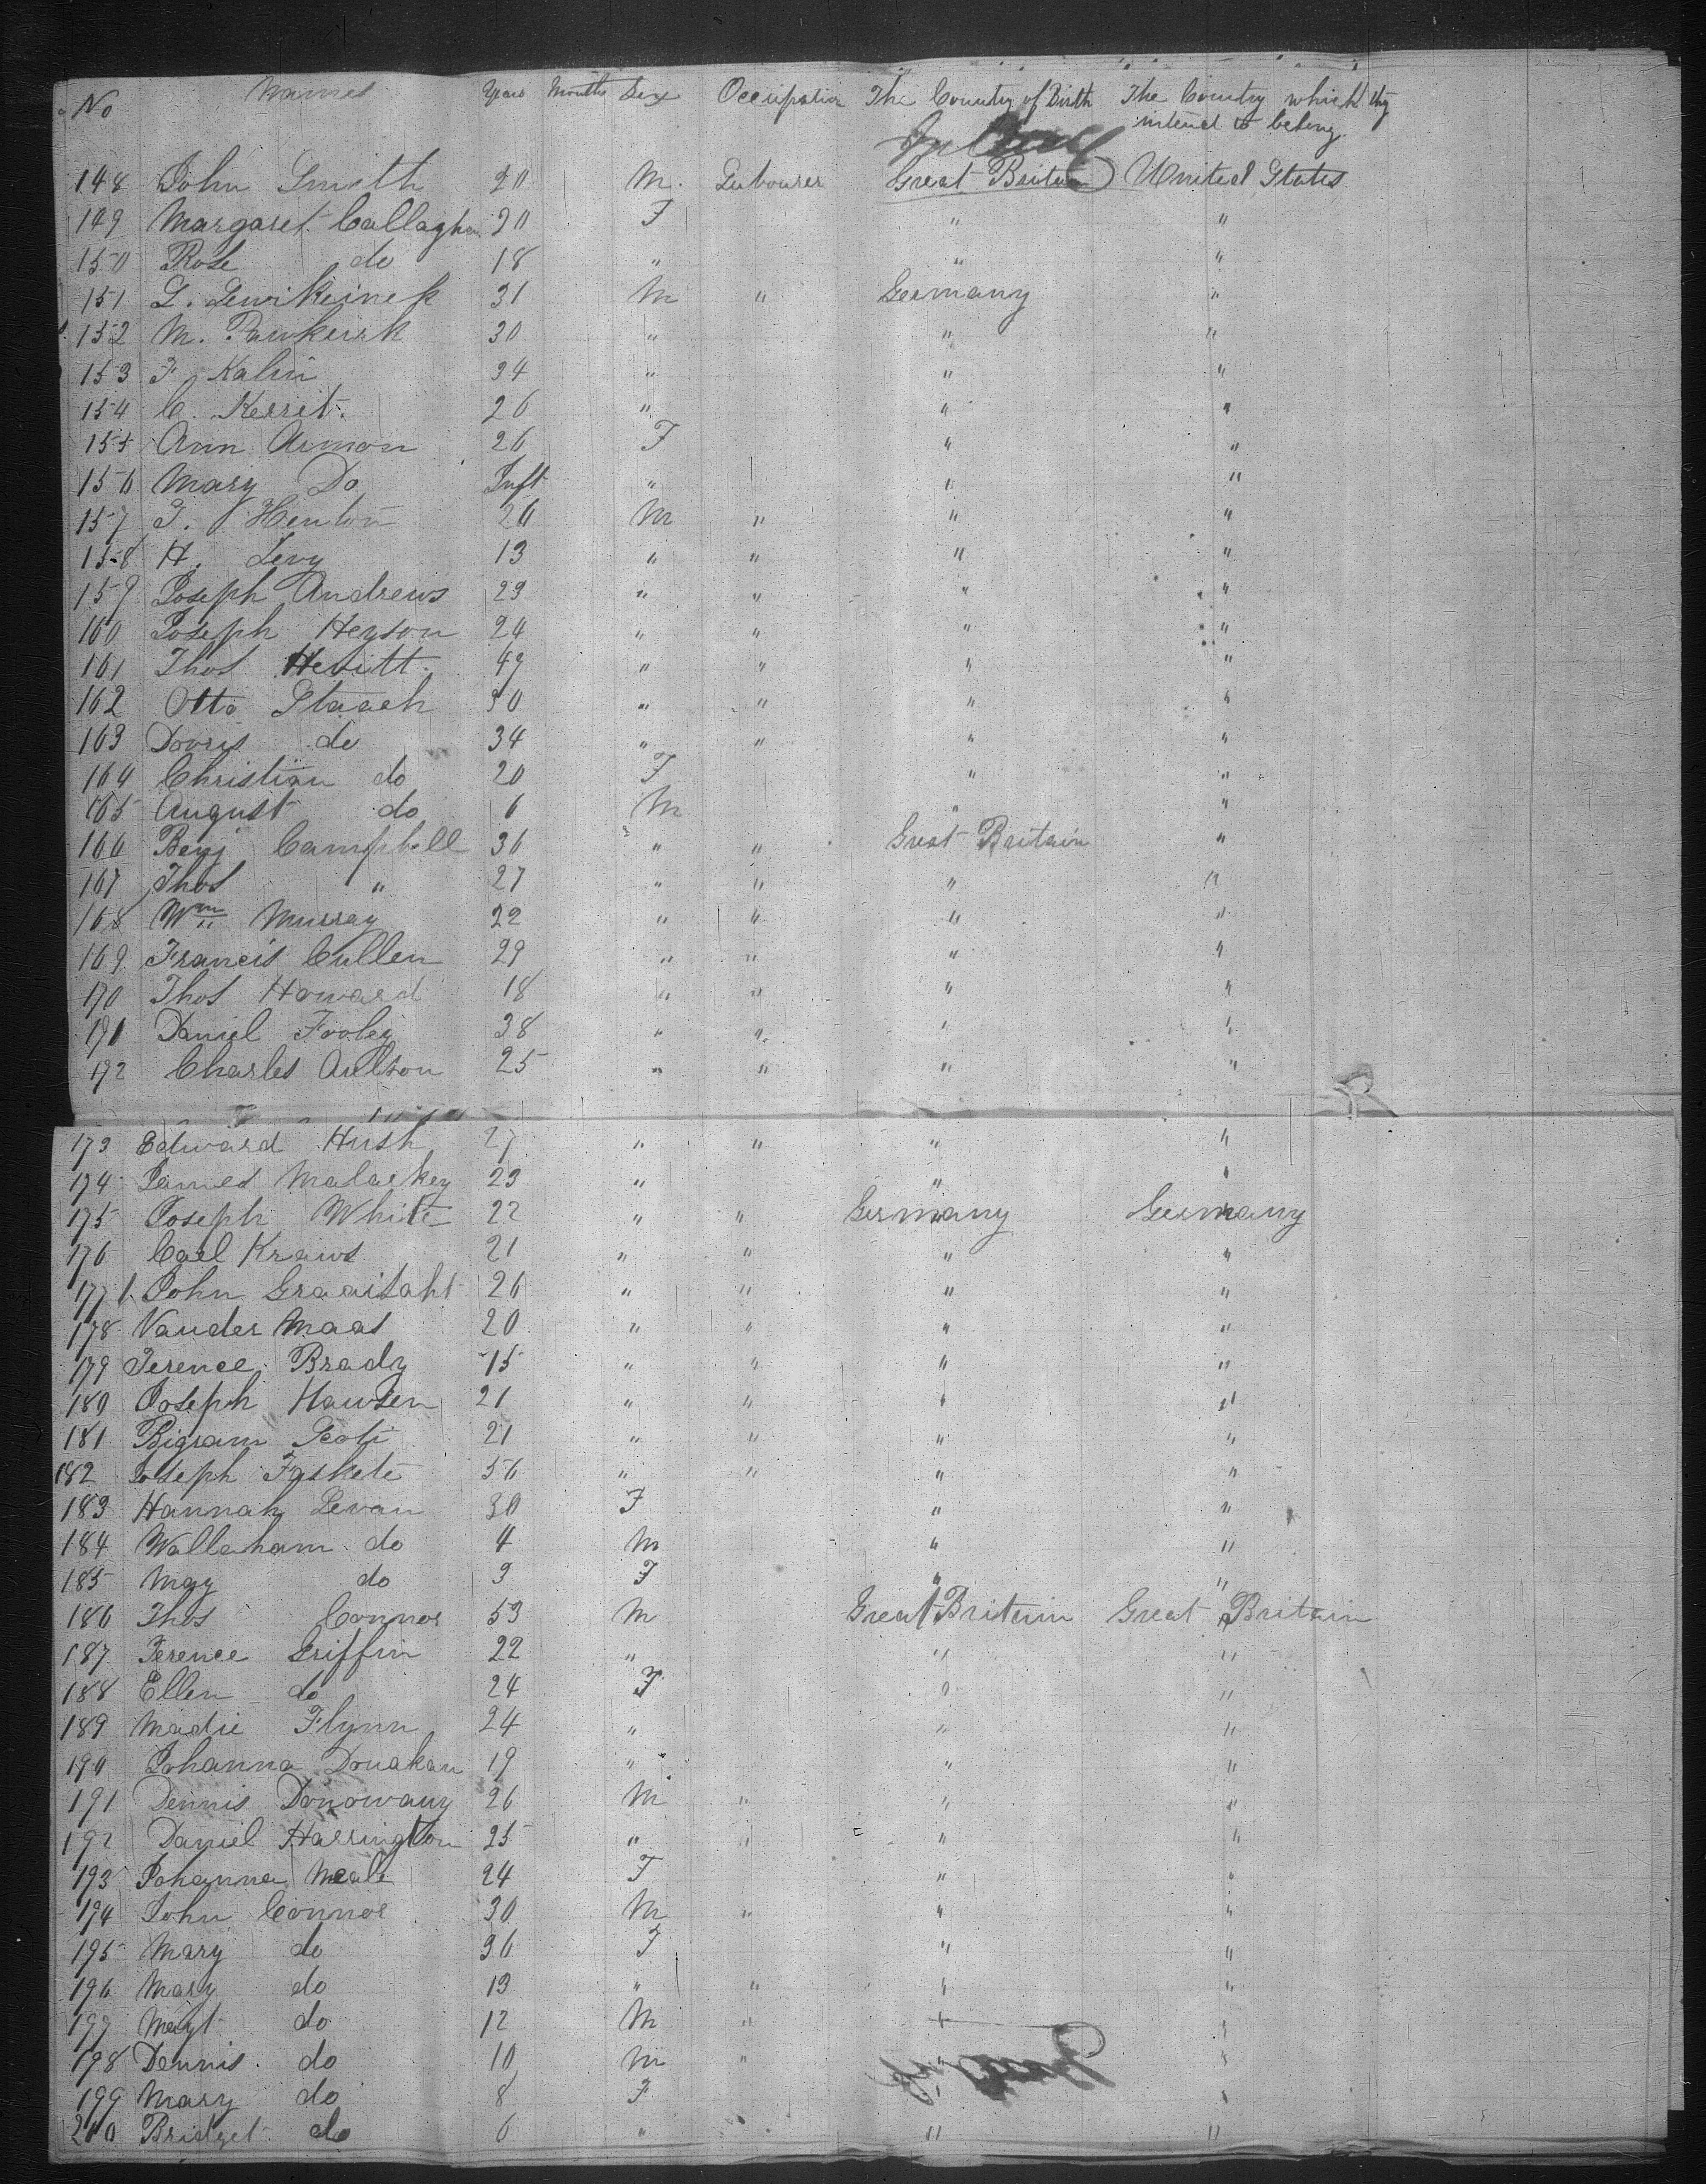 No Names Years Months Sex Occupation The Country of Birth The Country which they
intend to belong.
148 John Smith 20 M. Labourer Great Britain United States
149 Margaret Callaghan 20 F " "
150 Rose do 18 " " "
151 L. 31 M " Germany "
152 M. 30 " " "
153 F Kalin 34 " " "
154 C. Kerrit. 26 " " "
155 Ann Armon 26 F " "
156 Mary Do Inft " " "
157 Henton 20 M " " "
158 H. Levy 13 " " " "
159 Joseph Andrews 29 " " " "
160 Joseph Heyson 24 " " " "
161 Thos Hevitt. 49 " " " "
162 Otto Staach 30 " " " "
163 Dorris do 34 " " " "
164 Christian do 20 F " "
165 August do 6 M " "
166 Benj Campbell 36 " " Great Britain "
167 Thos " 27 " " " "
168 Wm Murray 22 " " " "
169 Francis Cullen 29 " " " "
170 Thos Howard 18 " " " "
171 Daniel Fooley 38 " " " "
172 Charles Aulson 25 " " " "
173 Edward Hush 27 " " " "
174 James Malackey 23 " " "
175 Joseph White 22 " " Germany Germany
176 Carl Kraws 21 " " " "
177 John Graaitaht 26 " " " "
178 Vander Maas 20 " " " "
179 Terence Brady 15 " " " "
180 Joseph Hawsen 21 " " " "
181 Bigram Scoti 21 " " " "
182 Joseph Faskete 56 " " " "
183 Hannah Levan 30 F " "
184 Wallaham do 4 M " "
185 May do 3 F " "
186 Thos Connor 53 M Great Britain Great Britain
187 Terence Griffin 22 " " "
188 Ellen do 24 F " "
189 Madie Flynn 24 " " "
190 Johanna Donakan 19 " " "
191 Dennis Donowany 26 M " " "
192 Daniel Harrington 25 " " " "
193 Johanna Meale 24 F " "
194 John Connor 30 M " " "
195 Mary do 36 F " "
196 Mary do 13 " " " "
197 do 12 M " " "
198 Dennis do 10 M " " "
199 Mary do 8 F " "
200 Bridget do 6 " " "